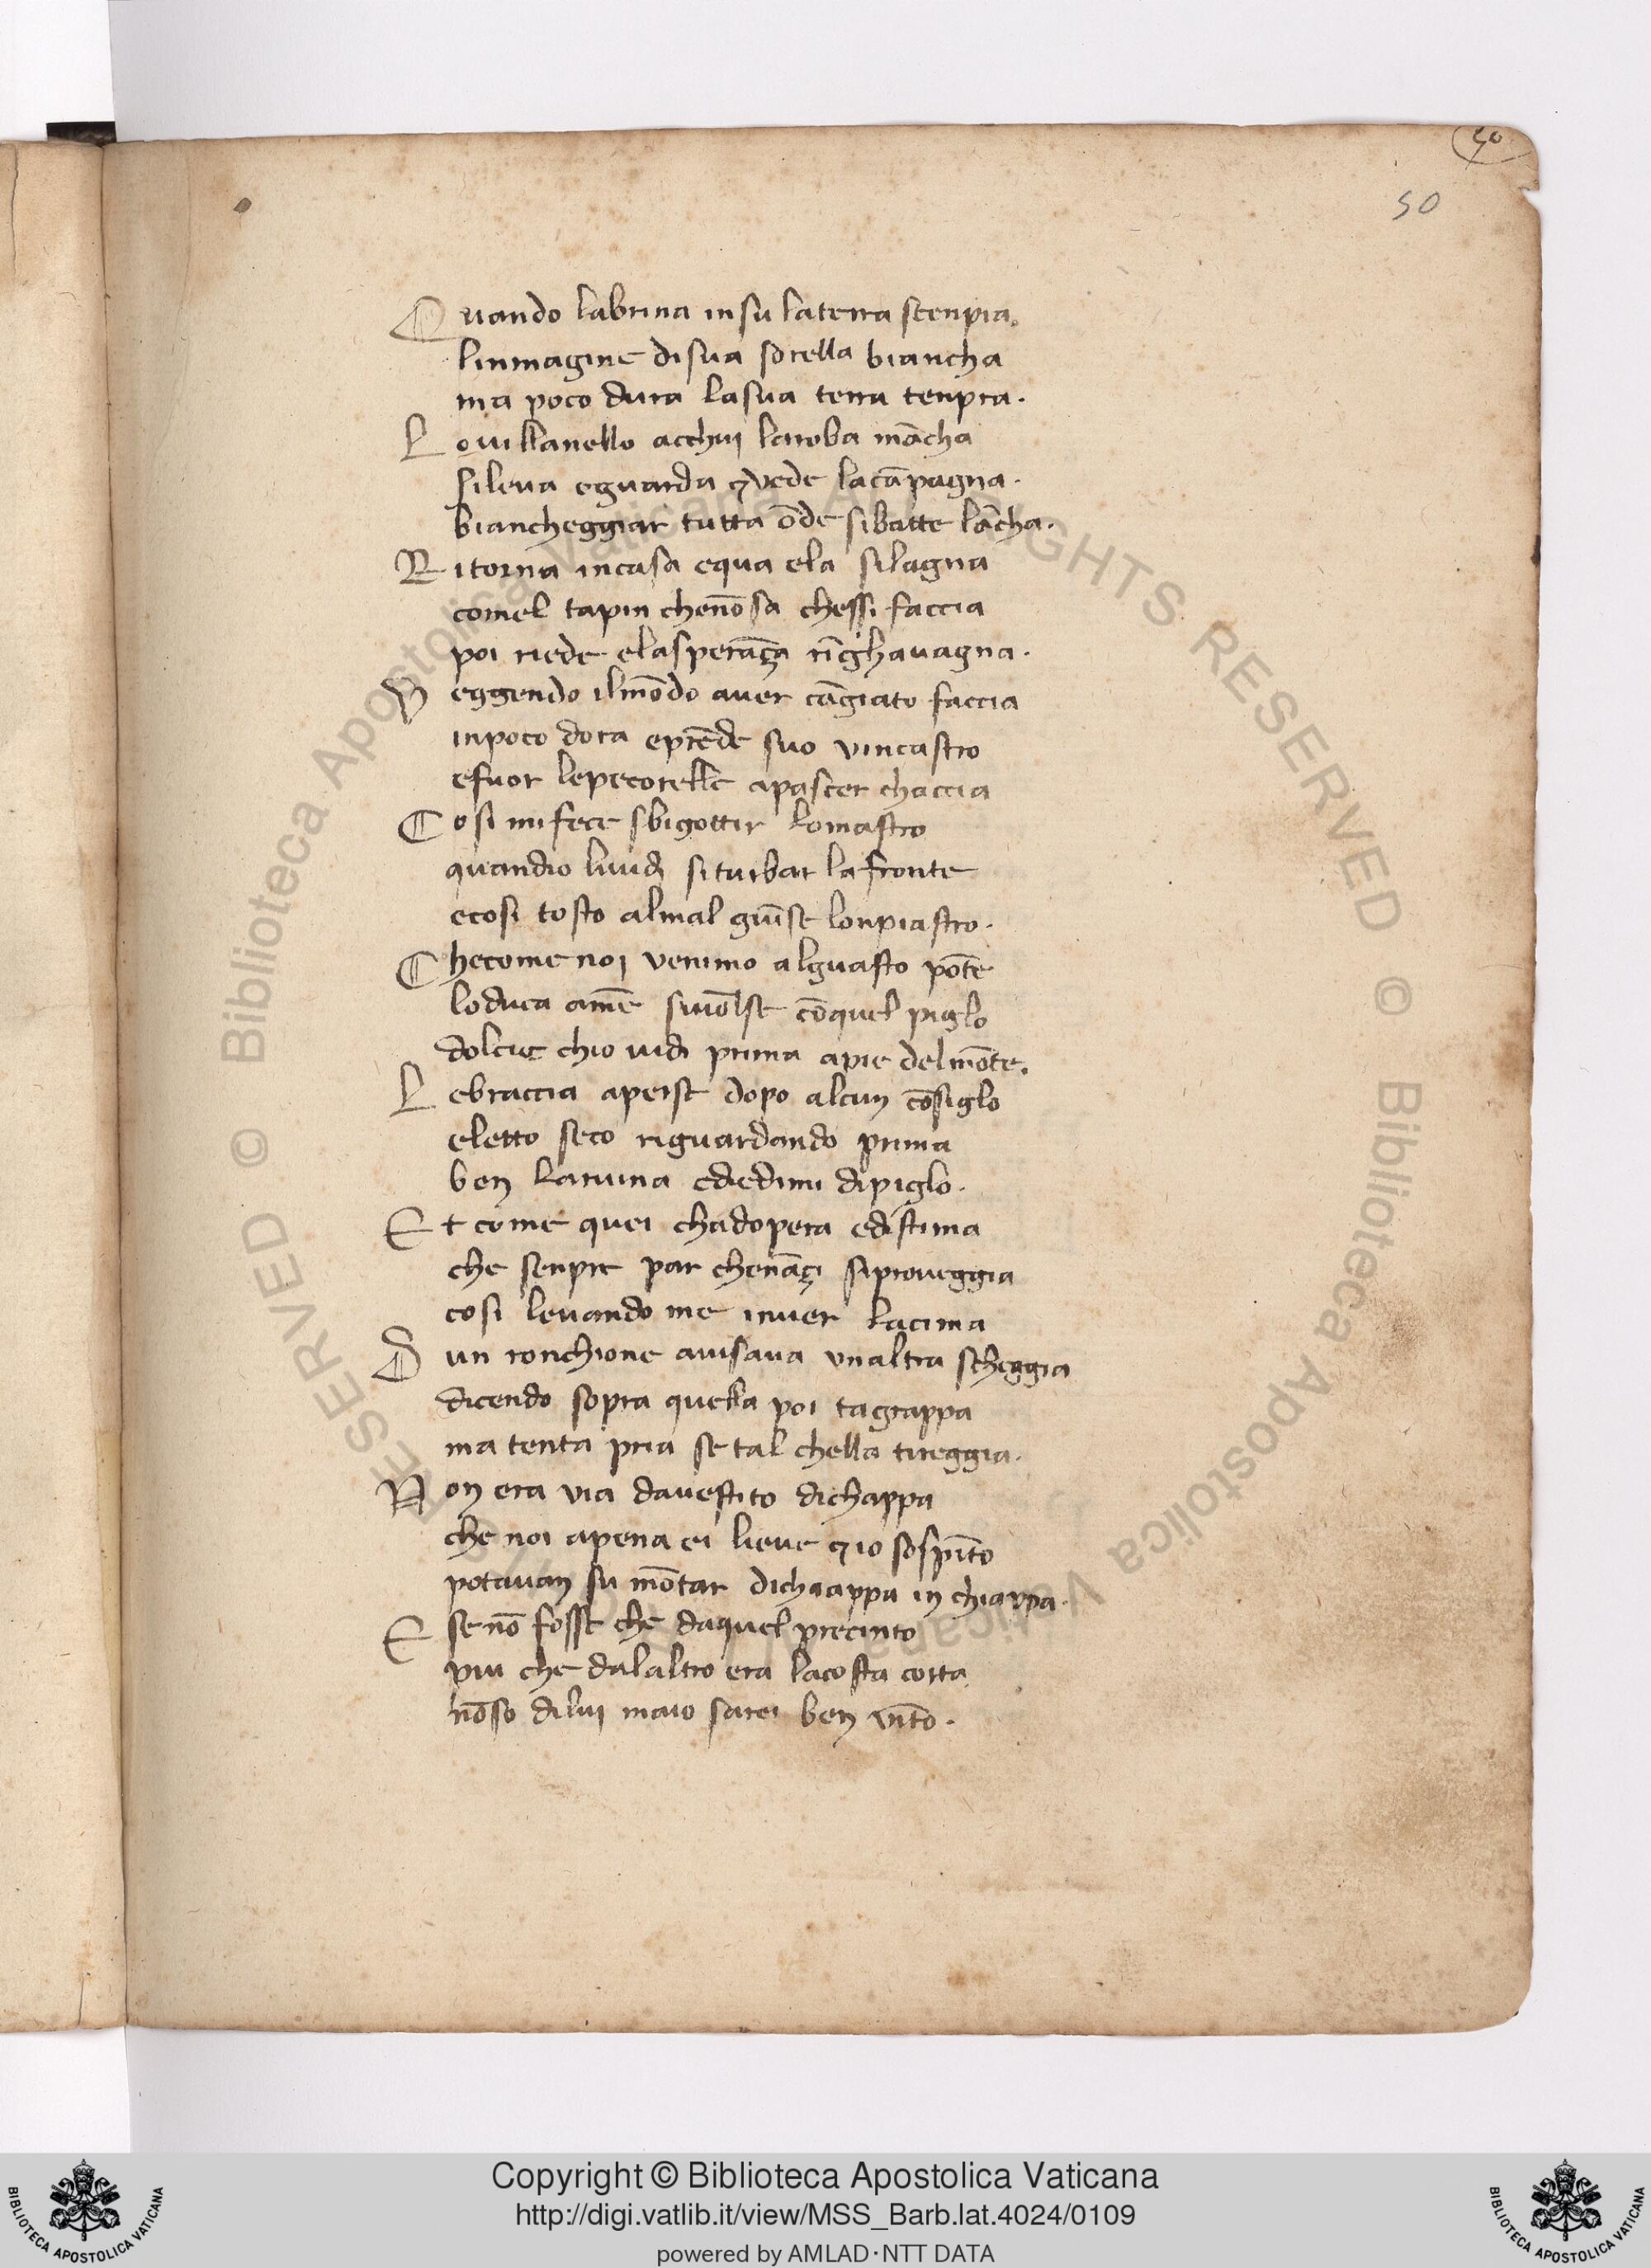 50
50
Quando labrina insu laterra scenpia.
linmagine disua sorella biancha
ma poco dura lasua terra tenpra.
Lo villanello acchui laroba mācha
sileva eguarda ⁊vede lacāpagna.
biancheggiar tutta ōde sibatte lācha.
Ritorna incasa equa ela silagna
comel tapin chenōsa chessi faccia
poi riede elasperāça rīghavagna.
Veggendo ilmōdo aver cāgiato faccia
inpoco dora eprēde suo vincastro
efuor lepecorelle apascer chaccia
Cosi mifece sbigottir lomastro
quandio lividi siturbar lafronte
ecosi tosto almal giūse lonpiastro.
Checomenoi venimo alguasto pōte
loduca amē sivolse cōquel piglo
dolcie chio vidi prima apie delmōte.
Lebraccia aperse dopo alcun cōsiglo
eletto seco riguardando prima
ben laruina ediedimi dipiglo.
Et come quei chadopera edistima
che senpre par chenāçi siproveggia
cosi levando me inver lacima
Dun ronchione avisava unaltra scheggia
dicendo sopra quella poi tagrappa
ma tenta pria se tal chella tireggia.
Non era via davestito dichappa
che noi apena ei lieve ⁊io sospīto
potavan su mōtar dichiappa in chiappa.
E se nō fosse che daquel precinto
piu che dalaltro era lacosta corta
nōso dilui maio sarei ben vīto.
Copyright © Biblioteca Apostolica Vaticana
http://digi.vatlib.it/view/MSS_Barb.lat.4024/0109
powered by AMLAD·NTT DATA
BIBLIOTECA APOSTOLICA VATICANA
BIBLIOTECA APOSTOLICA VATICANA
© Biblioteca Apostolica Vaticana ALL RIGHTS RESERVED © Biblioteca Apostolica Vaticana RIGHTS RESERVED